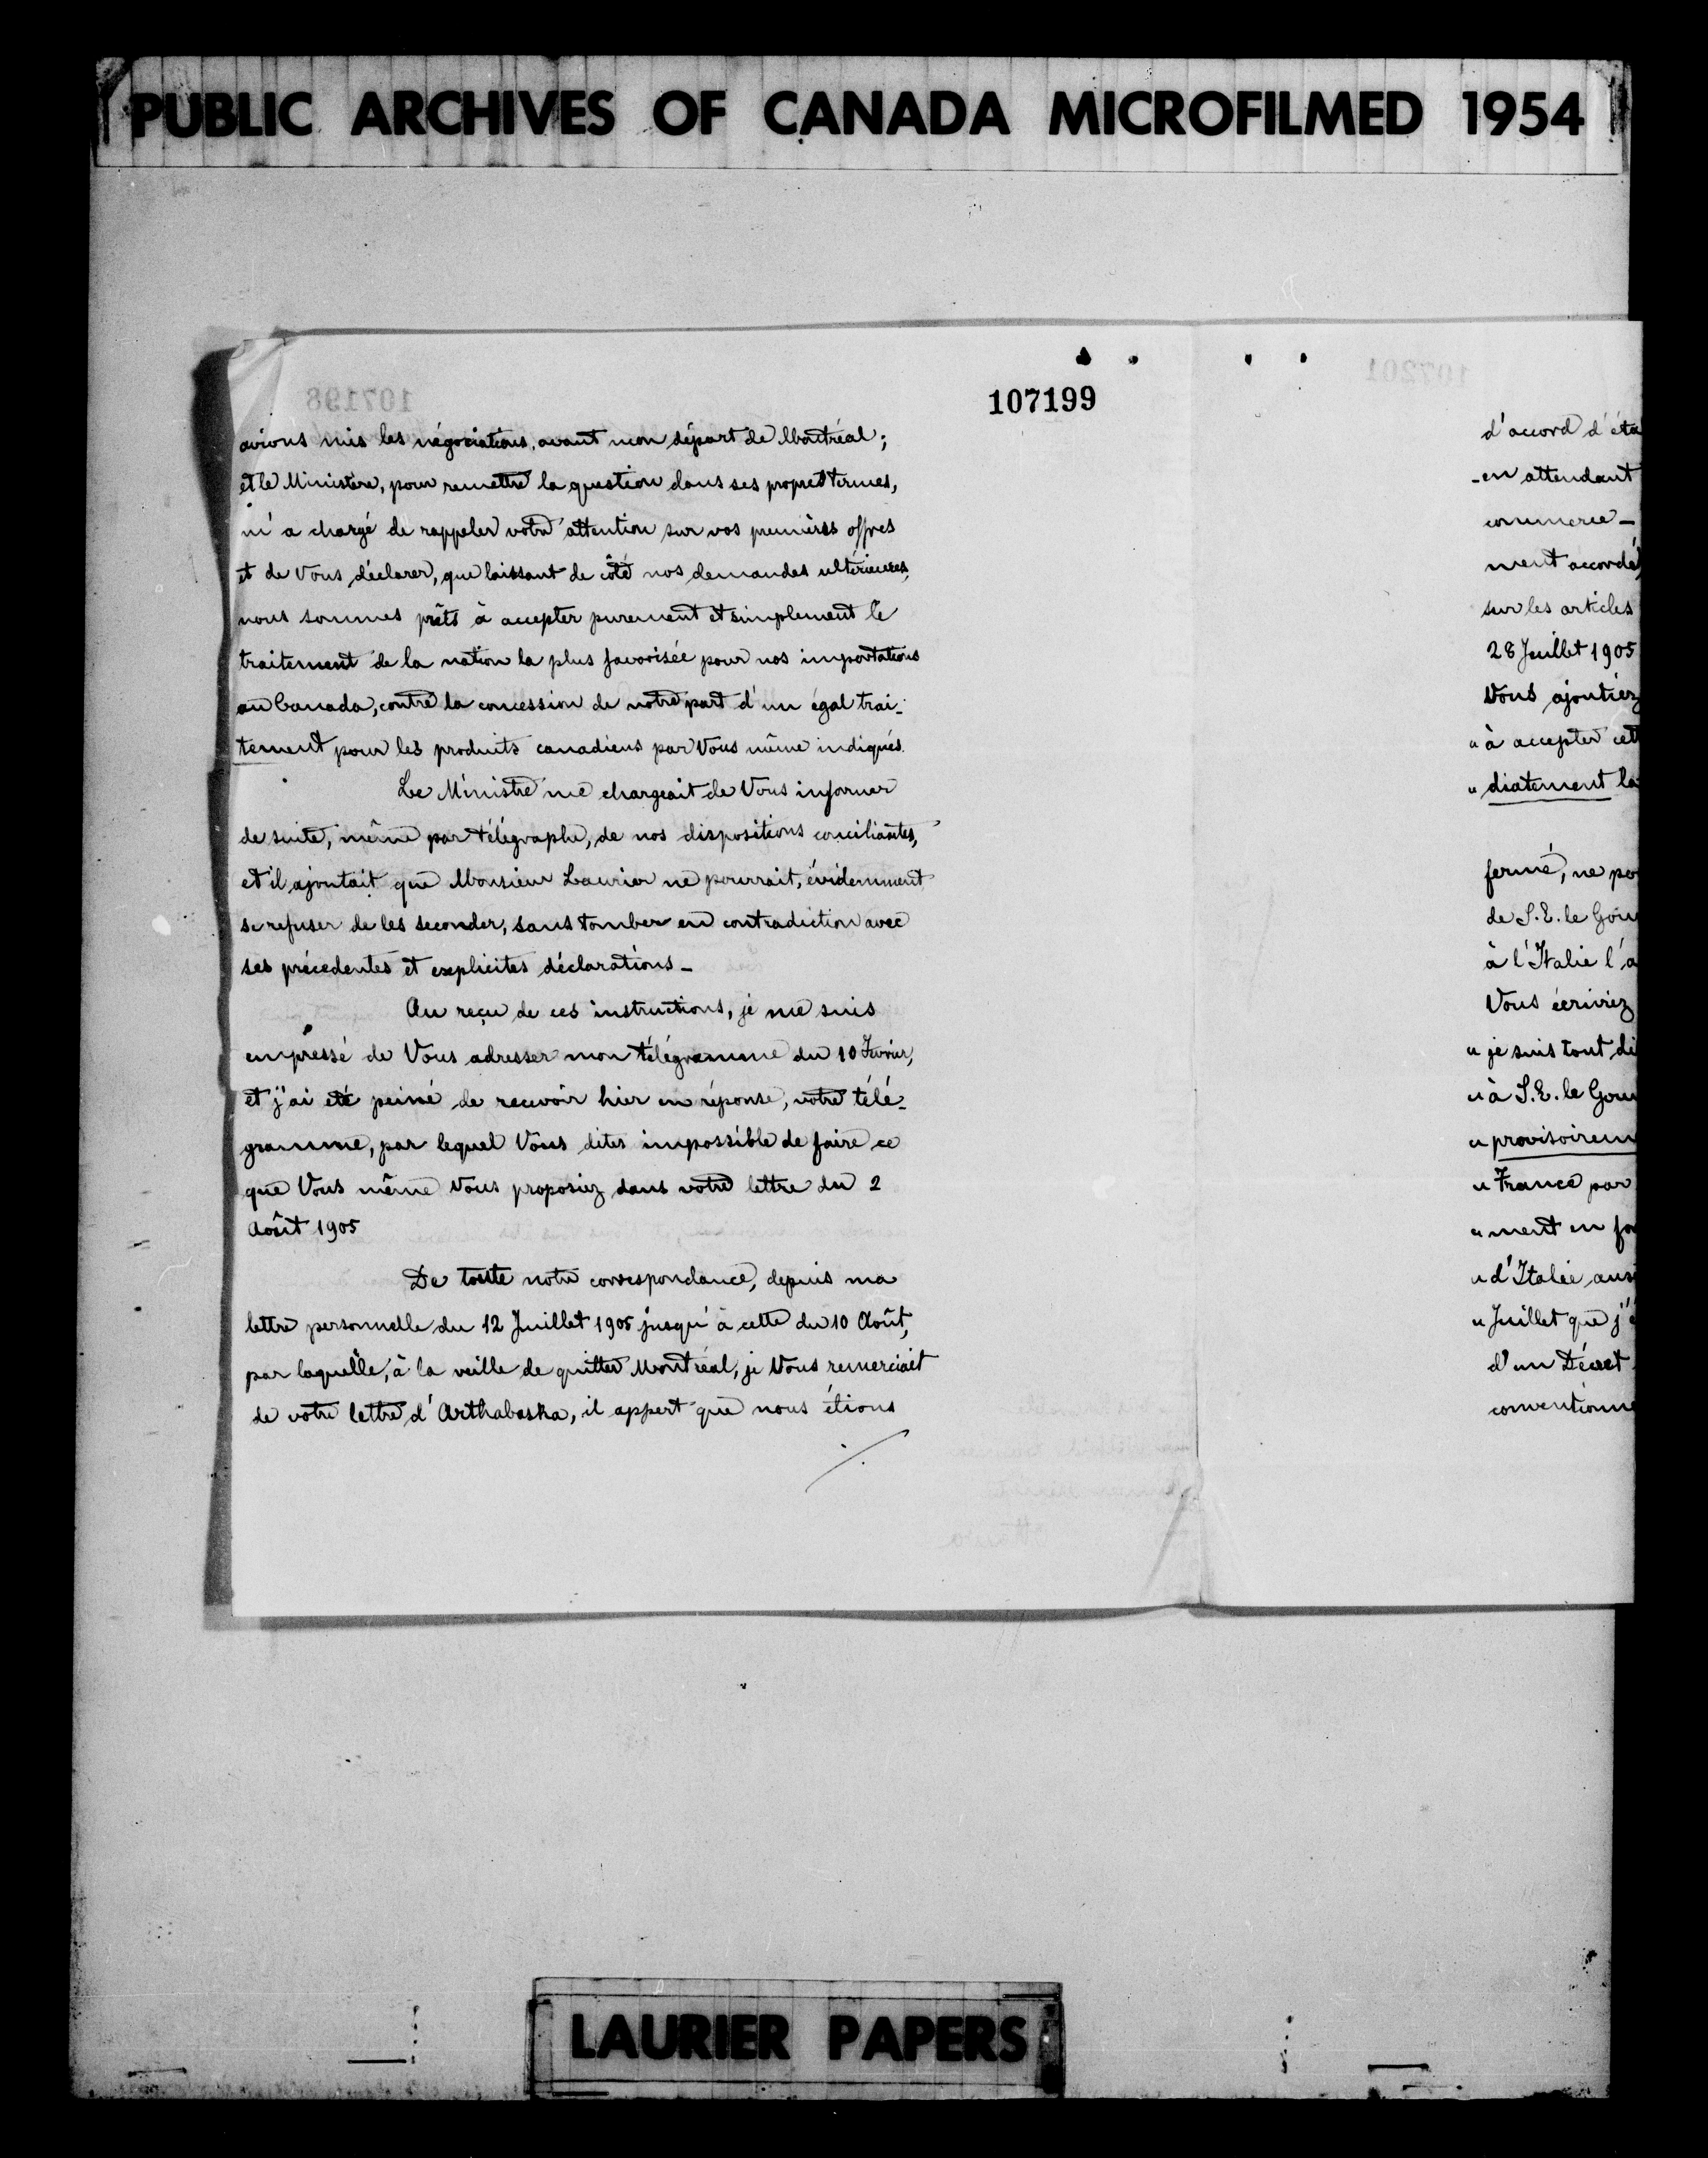 PUBLIC ARCHIVES OF CANADA MICROFILMED 1954
107199
avions mis les négociations, avant mon départ de Montréal;
et le Ministère, pour remettre la question dans ses propres termes,
m'a chargé de rappeler votre attention sur vos premières offres
et de Vous déclarer, que laissant de côté nos demandes ultérieures,
nous sommes prêts à accepter purement et simplement le
traitement de la nation la plus favorisée pour nos importations
au Canada, contre la concession de notre part d'un égal trai-
tement pour les produits canadiens par Vous même indiqués.
Le Ministre me chargeait de Vous informer
de suite, même par télégraphe, de nos dispositions conciliantes,
et il ajoutait que Monsieur Laurier ne pourrait, évidemment
se refuser de les seconder, sans tomber en contradiction avec
ses précedentes et explicites déclarations_
Au reçu de ces instructions, je me suis
empressé de Vous adresser mon télégramme du 10 Février,
et j'ai eté peiné de recevoir hier en réponse, votre télé-
gramme, par lequel Vous dites impossible de faire ce
que Vous même Vous proposiez dans votre lettre du 2
Août 1905
De toute notre correspondance, depuis ma
lettre personnelle du 12 Juillet 1905 jusqu'à cette du 10 Août,
par laquelle, à la veille de quitter Montréal, je Vous remerciait
de votre lettre d'Arthabaska, il appert que nous étions
./.
d'accord d'éta
-en attendant
commerce_
ment accordé
sur les articles
28 Juillet 1905
Vous ajoutiez
" à accepter cett
" diatement la
fermé, ne po
de S.E. le Gou
à l'Italie l'a
Vous écriviez
" je suis tout di
" à S.E. le Gou
" provisoirem
" France par
" ment en fo
" d'Italie aus
" Juillet que j'
d'un Décret
conventionne
LAURIER PAPERS